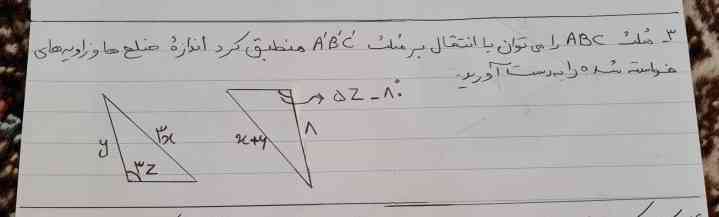 ۳- مثلث ABC را می توان با انتقال بر مثلث A'B'C' منطبق کرد اندازهٔ ضلع ها و زاویه های
خواسته شده را به دست آورید.
۵Z - ۸۰°
y
۳x
۳z
x+y
۸